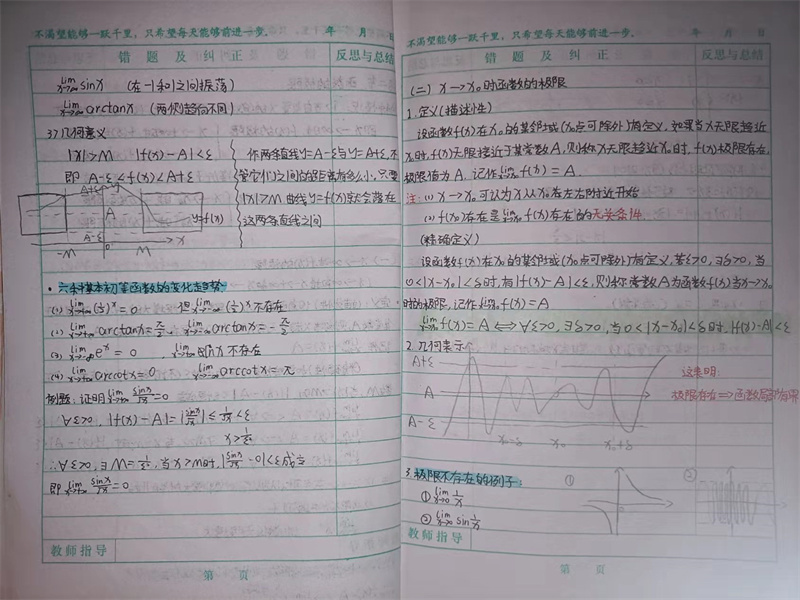 不渴望能够一跃千里，只希望每天能够前进一步.
年 月 日
错 题 及 纠 正
反思与总结
lim x→∞ sinx (在-1和1之间振荡)
lim x→∞ arctanx (两侧趋向不同)
3) 几何意义
|x|>M |f(x)-A|<ε
即 A-ε<f(x)<A+ε
作两条直线y=A-ε与y=A+ε, 不
管它们之间的距离有多么小, 只要
|x|>M 曲线y=f(x)就会落在
这两条直线之间
A+ε
y
A
y=f(x)
A-ε
-M 0 M x
· 六种基本初等函数的变化趋势
(1) lim x→+∞ (1/2)^x = 0 但 lim x→-∞ (1/2)^x 不存在
(2) lim x→+∞ arctanx = π/2 lim x→-∞ arctanx = -π/2
(3) lim x→-∞ e^x = 0 , 不存在
(4) lim x→+∞ arccotx = 0 lim x→-∞ arccotx = π
例题: 证明 lim x→+∞ sinx/√x = 0
∀ε>0, |f(x)-A| = |sinx/√x| ≤ 1/√x < ε
x > 1/ε²
∴∀ε>0, ∃M=1/ε², 当x>M时, |sinx/√x - 0|<ε成立
即 lim x→+∞ sinx/√x = 0
教师指导
第 页
不渴望能够一跃千里，只希望每天能够前进一步.
年 月 日
错 题 及 纠 正
反思与总结
(二) x→x₀时函数的极限
1. 定义(描述性)
设函数f(x)在x₀的某邻域(x₀点可除外)有定义, 如果当x无限趋近
x₀时, f(x)无限接近于某常数A, 则称x无限趋近x₀时, f(x)极限存在,
极限值为A. 记作 lim x→x₀ f(x) = A.
注: (1) x→x₀可认为x从x₀左右附近开始
(2) f(x₀)存在是 lim x→x₀ f(x)存在的无关条件
(精确定义)
设函数f(x)在x₀的某邻域(x₀点可除外)有定义, 若∀ε>0, ∃δ>0, 当
0<|x-x₀|<δ时, 有|f(x)-A|<ε, 则称常数A为函数f(x)当x→x₀
时的极限, 记作 lim x→x₀ f(x) = A
lim x→x₀ f(x) = A ⟺ ∀ε>0, ∃δ>0, 当0<|x-x₀|<δ时, |f(x)-A|<ε
2. 几何表示
A+ε
A
A-ε
x₀-δ x₀ x₀+δ
这表明:
极限存在⇒函数局部有界
3. 极限不存在的例子:
① lim x→0 1/x
② lim x→0 sin 1/x
①
②
教师指导
第 页